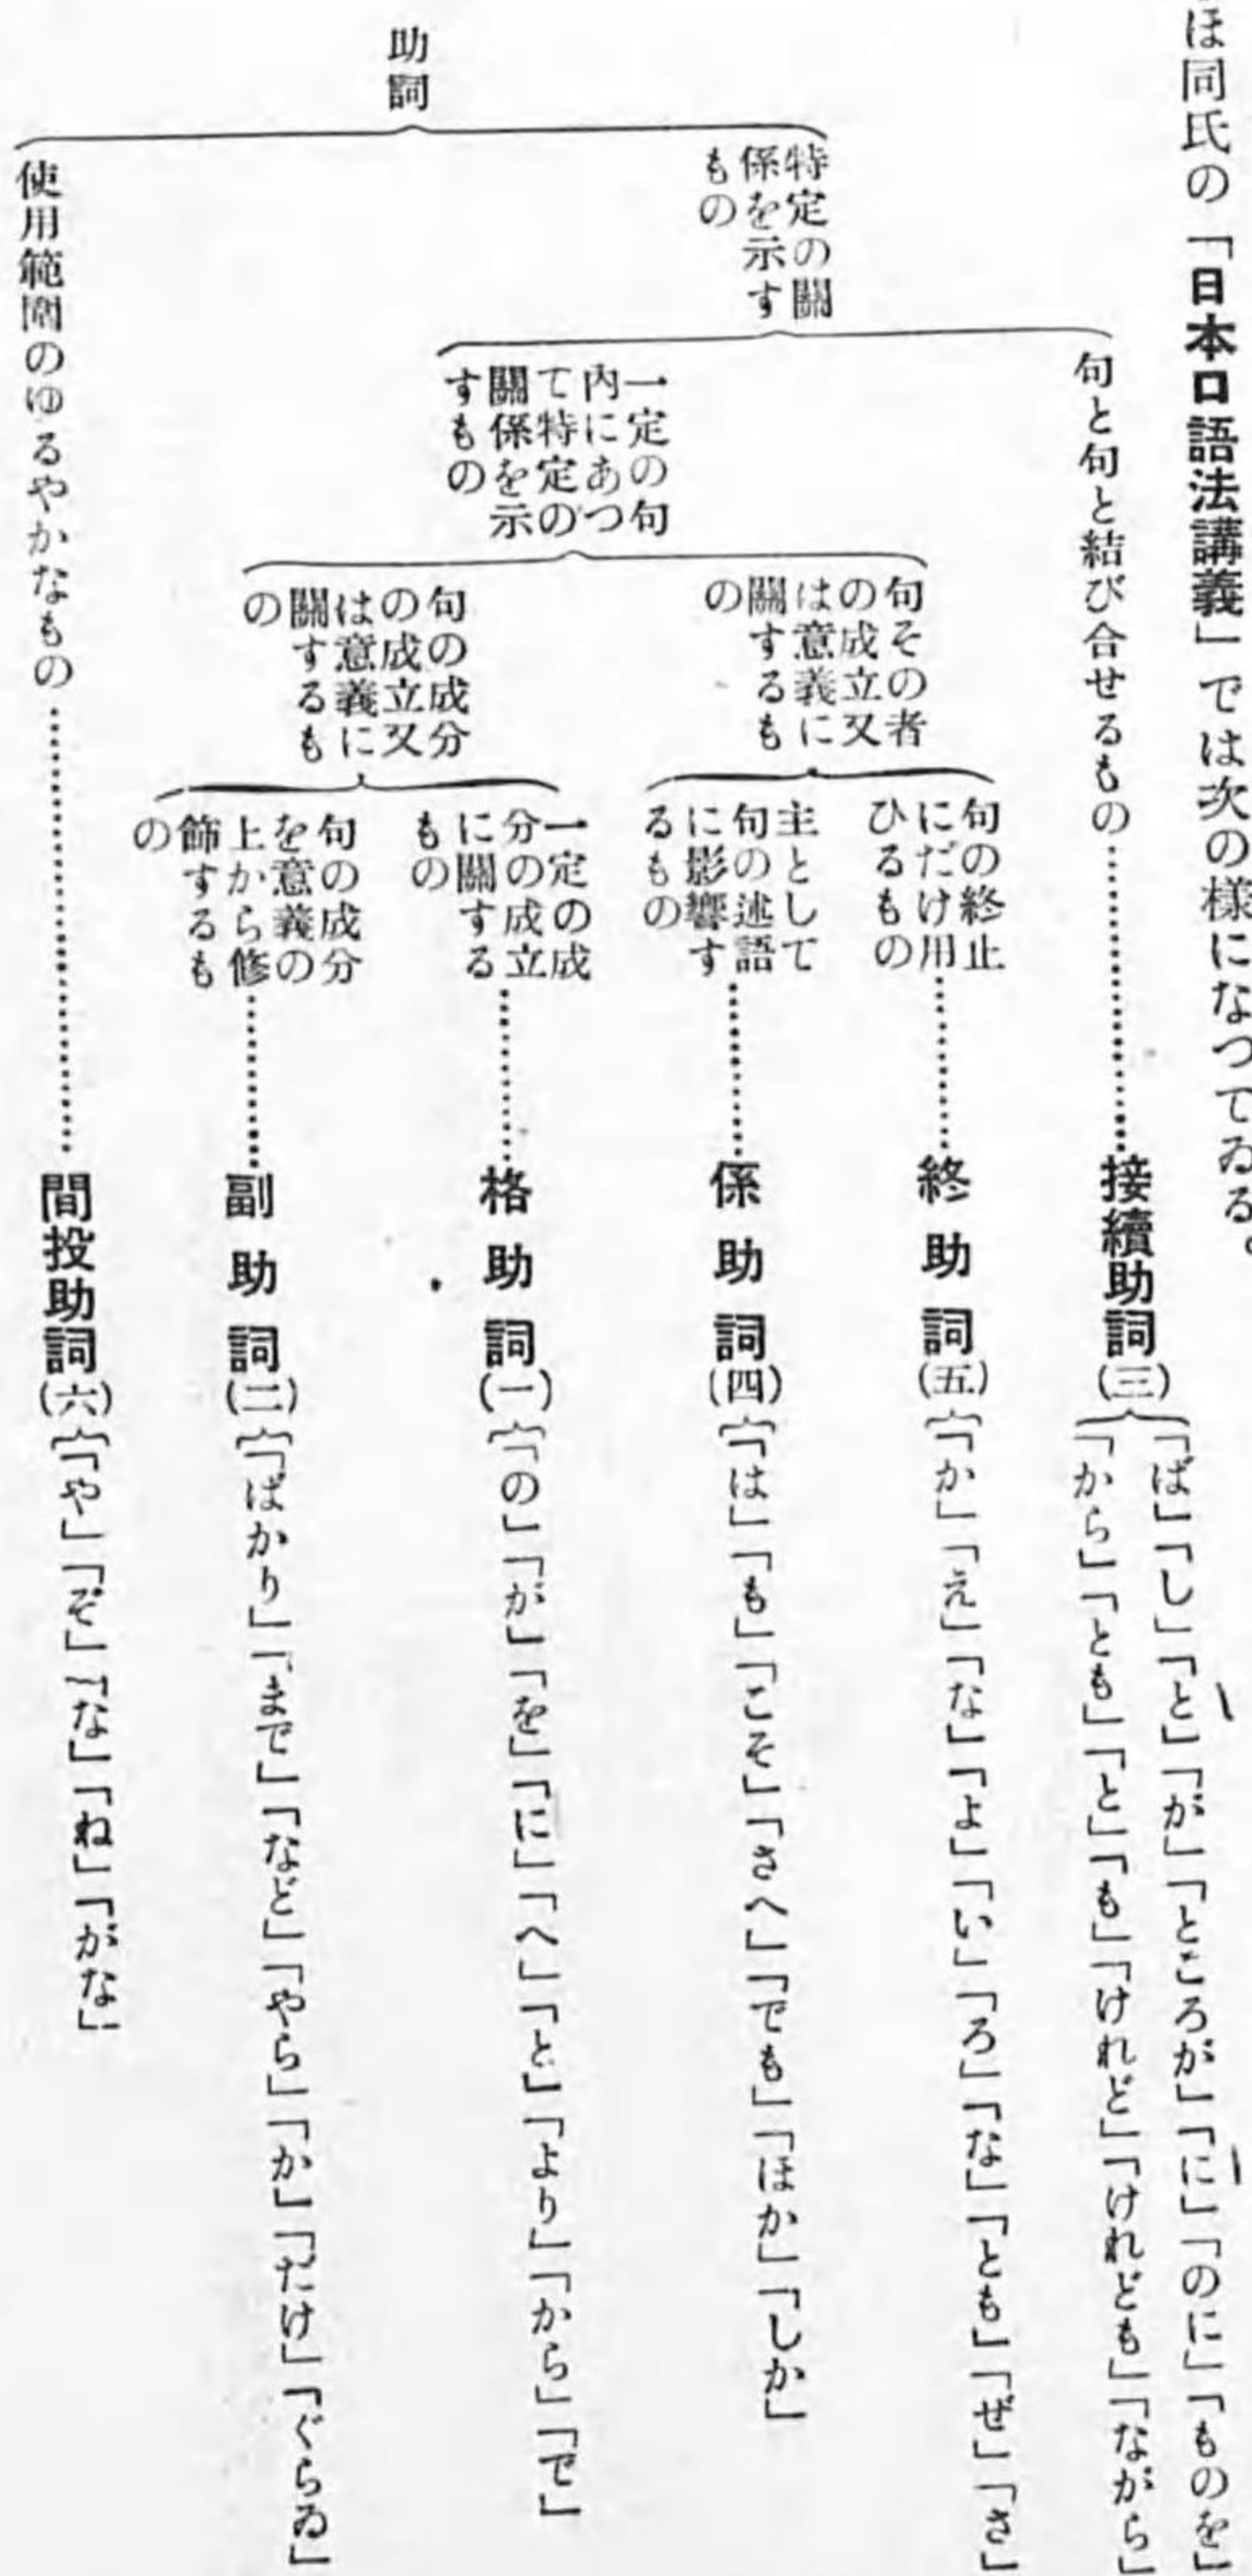 ほ同氏の「日本口語法講義」では次の様になつてゐる。
助詞
特定の關
係を示す
もの
句と句と結び合せるもの
接續助詞(三)
「ば」「し」「と」「が」「ところが」「に」「のに」「ものを」
「から」「とも」「と」「も」「けれど」「けれども」「ながら」
一定の句
内にあつ
て特定の
關係を示
すもの
句その者
の成立又
は意義に
關するも
の
句の終止
にだけ用
ひるもの
終助詞(五)
「か」「え」「な」「よ」「い」「ろ」「な」「とも」「ぜ」「さ」
主として
句の述語
に影響す
るもの
係助詞(四)
「は」「も」「こそ」「さへ」「でも」「ほか」「しか」
句の成分
の成立又
は意義に
關するも
の
一定の成
分の成立
に關する
もの
格助詞(一)
「の」「が」「を」「に」「へ」「と」「より」「から」「で」
句の成分
を意義の
上から修
飾するも
の
副助詞(二)
「ばかり」「まで」「など」「やら」「か」「だけ」「ぐらゐ」
使用範圍のゆるやかなもの
間投助詞(六)
「や」「ぞ」「な」「ね」「がな」